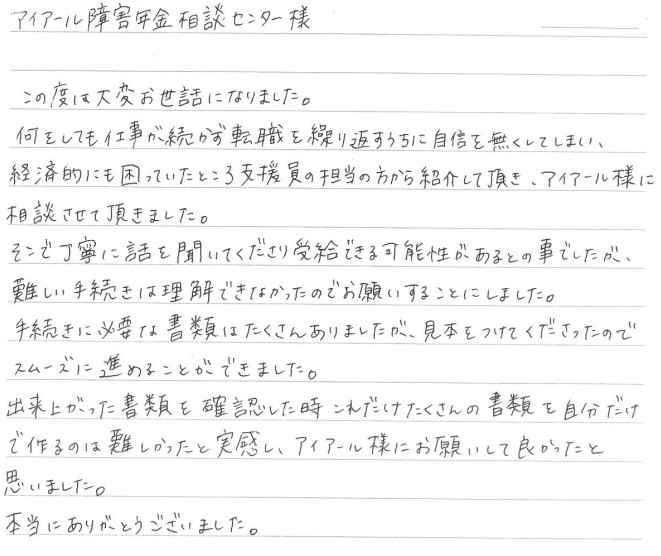 アイアール障害年金相談センター様
この度は大変お世話になりました。
何をしても仕事が続かず転職を繰り返すうちに自信を無くしてしまい、
経済的にも困っていたところ支援員の担当の方から紹介して頂き、アイアール様に
相談させて頂きました。
そこで丁寧に話を聞いてくださり受給できる可能性があるとの事でしたが、
難しい手続きは理解できなかったのでお願いすることにしました。
手続きに必要な書類はたくさんありましたが、見本をつけてくださったので
スムーズに進めることができました。
出来上がった書類を確認した時これだけたくさんの書類を自分だけ
で作るのは難しかったと実感し、アイアール様にお願いして良かったと
思いました。
本当にありがとうございました。